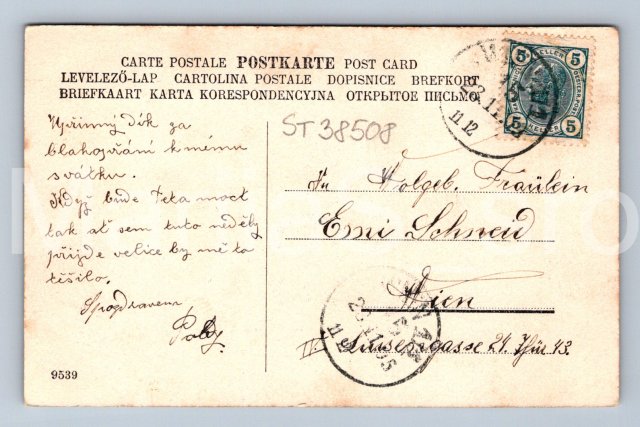 CARTE POSTALE POSTKARTE POST CARD
LEVELEZŐ-LAP CARTOLINA POSTALE DOPISNICE BREFKORT
BRIEFKAART KARTA KORESPONDENCYJNA ОТКРЫТОЕ ПИСЬМО
ST 38508
5 HELLER 5
5 HELLER 5
Upřímný dík za
blahopřání k mému
svátku.
Když bude Teta moct
tak ať sem tuto neděly
přijde velice by mě to
těšilo.
S pozdravem
Poldy
Wolgeb. Fräulein
Emi Schneid
Wien
III 21. Thür 43.
9539